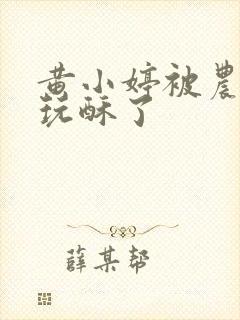 黄小婷被農
玩酥了
薛某帮